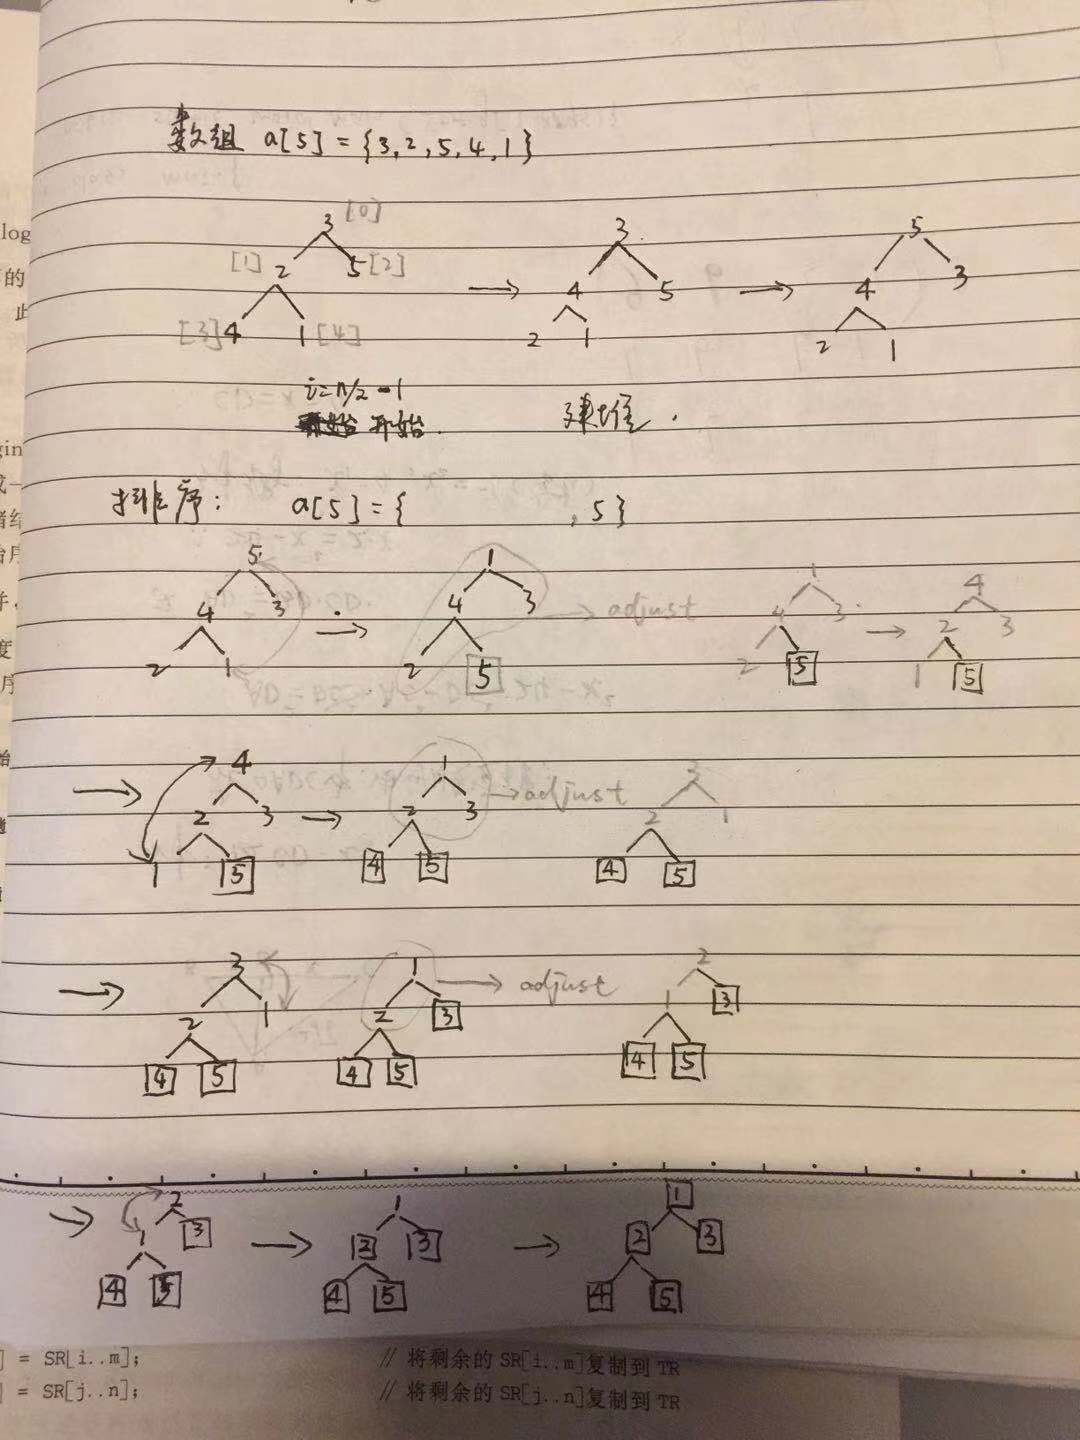 数组 a[5] = {3,2,5,4,1}
3 [0] 3 5
[1] 2 5 [2] → 4 5 → 4 3
[3] 4 1 [4] 2 1 2 1
i=n/2-1
开始. 建堆.
排序: a[5] = { ,5}
5 1 1 4
4 3 → 4 3 → adjust 4 3 → 2 3
2 1 2 5 2 5 1 5
→ 4 1 3
2 3 → 2 3 → adjust 2 1
1 5 4 5 4 5
→ 3 1 → adjust 2
2 1 2 3 1 3
4 5 4 5 4 5
→ 2 1 1
1 3 → 2 3 → 2 3
4 5 4 5 4 5
] = SR[i..m]; // 将剩余的 SR[i..m]复制到 TR
] = SR[j..n]; // 将剩余的 SR[j..n]复制到 TR
log
的
此
gin
成一
者结
始序
并,
度
序